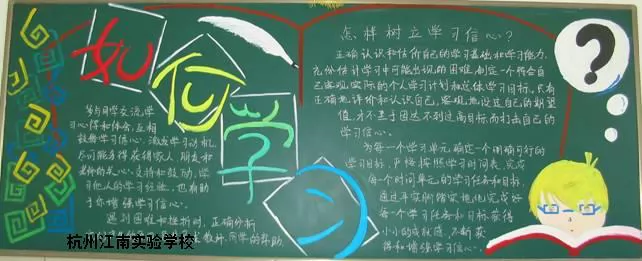 如何学习
多与同学交流学
习心得和体会,互相
鼓励学习信心,激发学习动机,
尽可能多得获得家人,朋友和
老师的关心,支持和鼓励,学
习他人的学习经验,也有助
于你增强学习信心。
遇到困难和挫折时,正确分析
教师,同学的帮助.
怎样树立学习信心?
正确认识和估价自己的学习基础和学习能力,
充份估计学习中可能出现的困难,制定一个符合自
己客观实际的个人学习计划和总体学习目标,只有
正确地评价和认识自己,客观地设定自己的期望
值,才不至于因达不到过高目标而打击自己的
学习信心.
为每一个学习单元确定一个明确可行的
学习目标,严格按照学习时间表,完成
每一个时间单元的学习任务和目标,
通过平实脚踏实地地完成好
每一个学习任务和目标,获得
小小的成就感,不断获
得和增强学习信心.
?
杭州江南实验学校